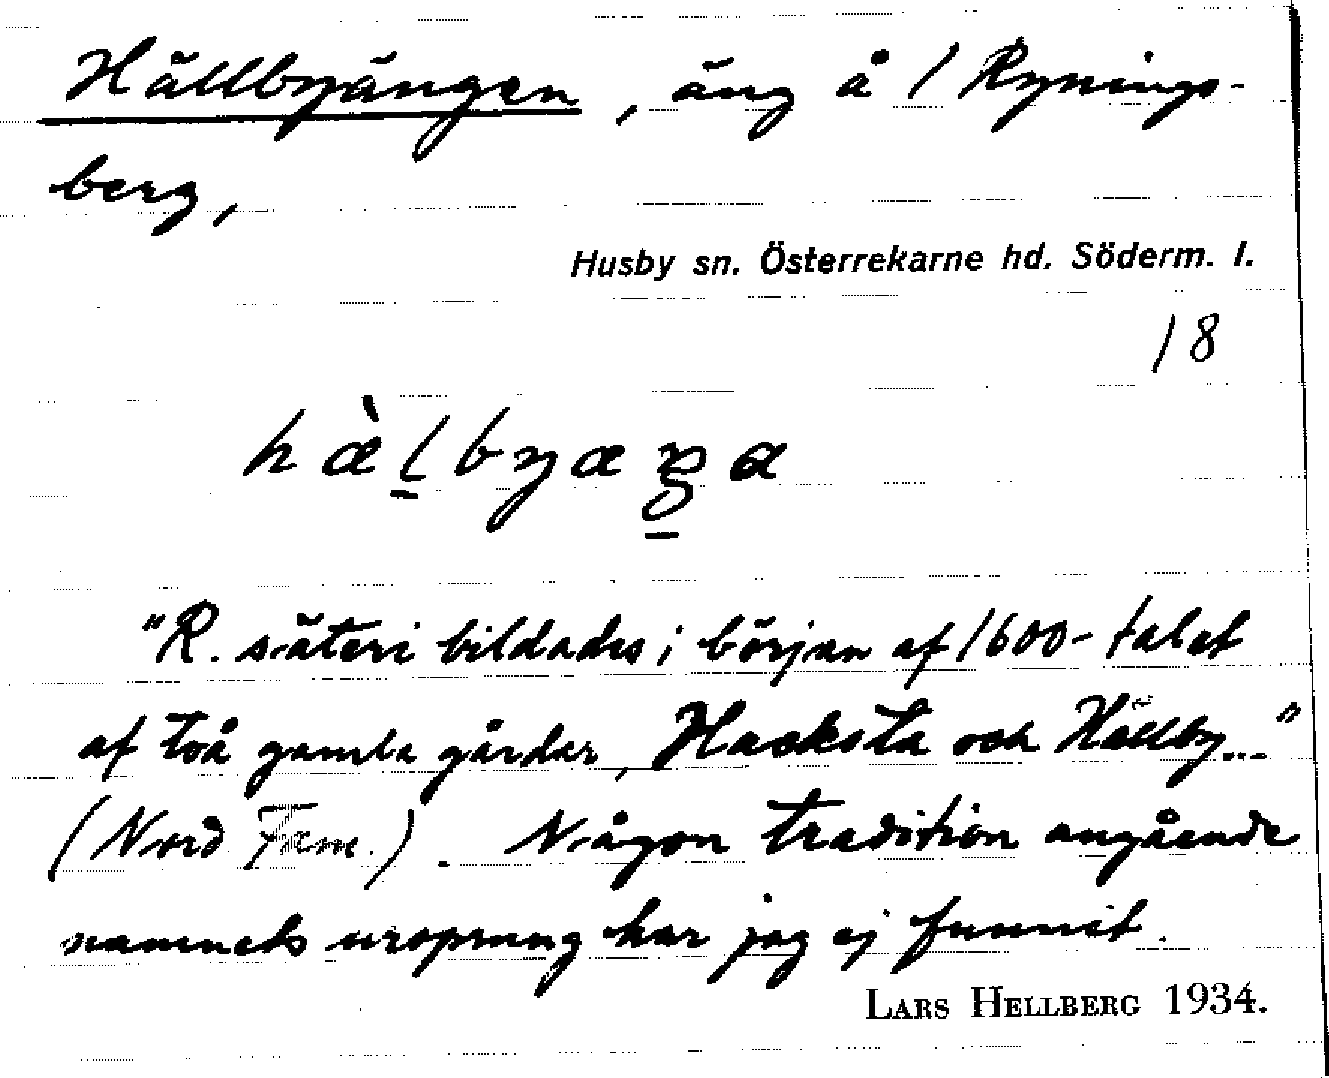 Hällbyängen, äng å 1 Rynings-
berg,
Husby sn. Österrekarne hd. Söderm. l.
18
hæ̀l̠byæŋ̠a
"R. säteri bildades i början af 1600-talet
af två gamla gårdar, Hacksta och Hällby..."
(Nord Fam.). Någon tradition angående
namnets ursprung har jag ej funnit.
LARS HELLBERG 1934.